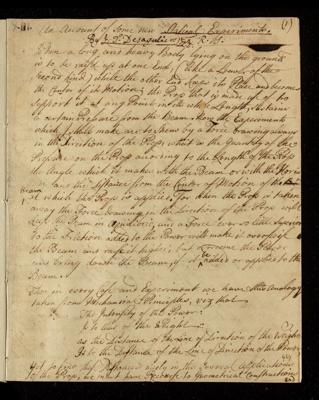 An Account of some new Statical Experiments. (1)
By J. T. Desaguliers F. R. S.
When a long and heavy Body lying on the ground
is to be rais'd up at one End, (like a Leaver of the
second kind) while the other End keeps its Place and becomes
the Center of its Motion; the Prop that is made use of to
support it at any Point in the whole Length, sustains
a certain Pressure from the Beam. Now the Experiments
which I shall make are to shew by a Force drawing always
in the Direction of the Prop, what is the Quantity of the
Pressure on the Prop according to the Length of the Prop
the Angle which it makes with the Beam or with the Horizon
and the Distance from the Center of Motion
Beam
at which the Prop is applied. For when the Prop is taken
away the Force drawing in the Direction of the Prop will
keep the Beam in Aequilibrio, and a Force ever so little
to the Friction added to the Power will make it overpoise
the Beam and raise it higher, but
and bring down the Beam, if added or applied to the
Beam.
Now in every Case and Experiment we have this Analogy
taken from Mechanical Principles, viz that
The Intensity of the Power:
Is to that of the Weight::
as the Distance of the Line of Direction of the Weight:
Is to the Distance of the Line of Direction of the Power
yet to find this Distance easily in the several
of the Prop, we must have Recourse to Geometrical Constructions